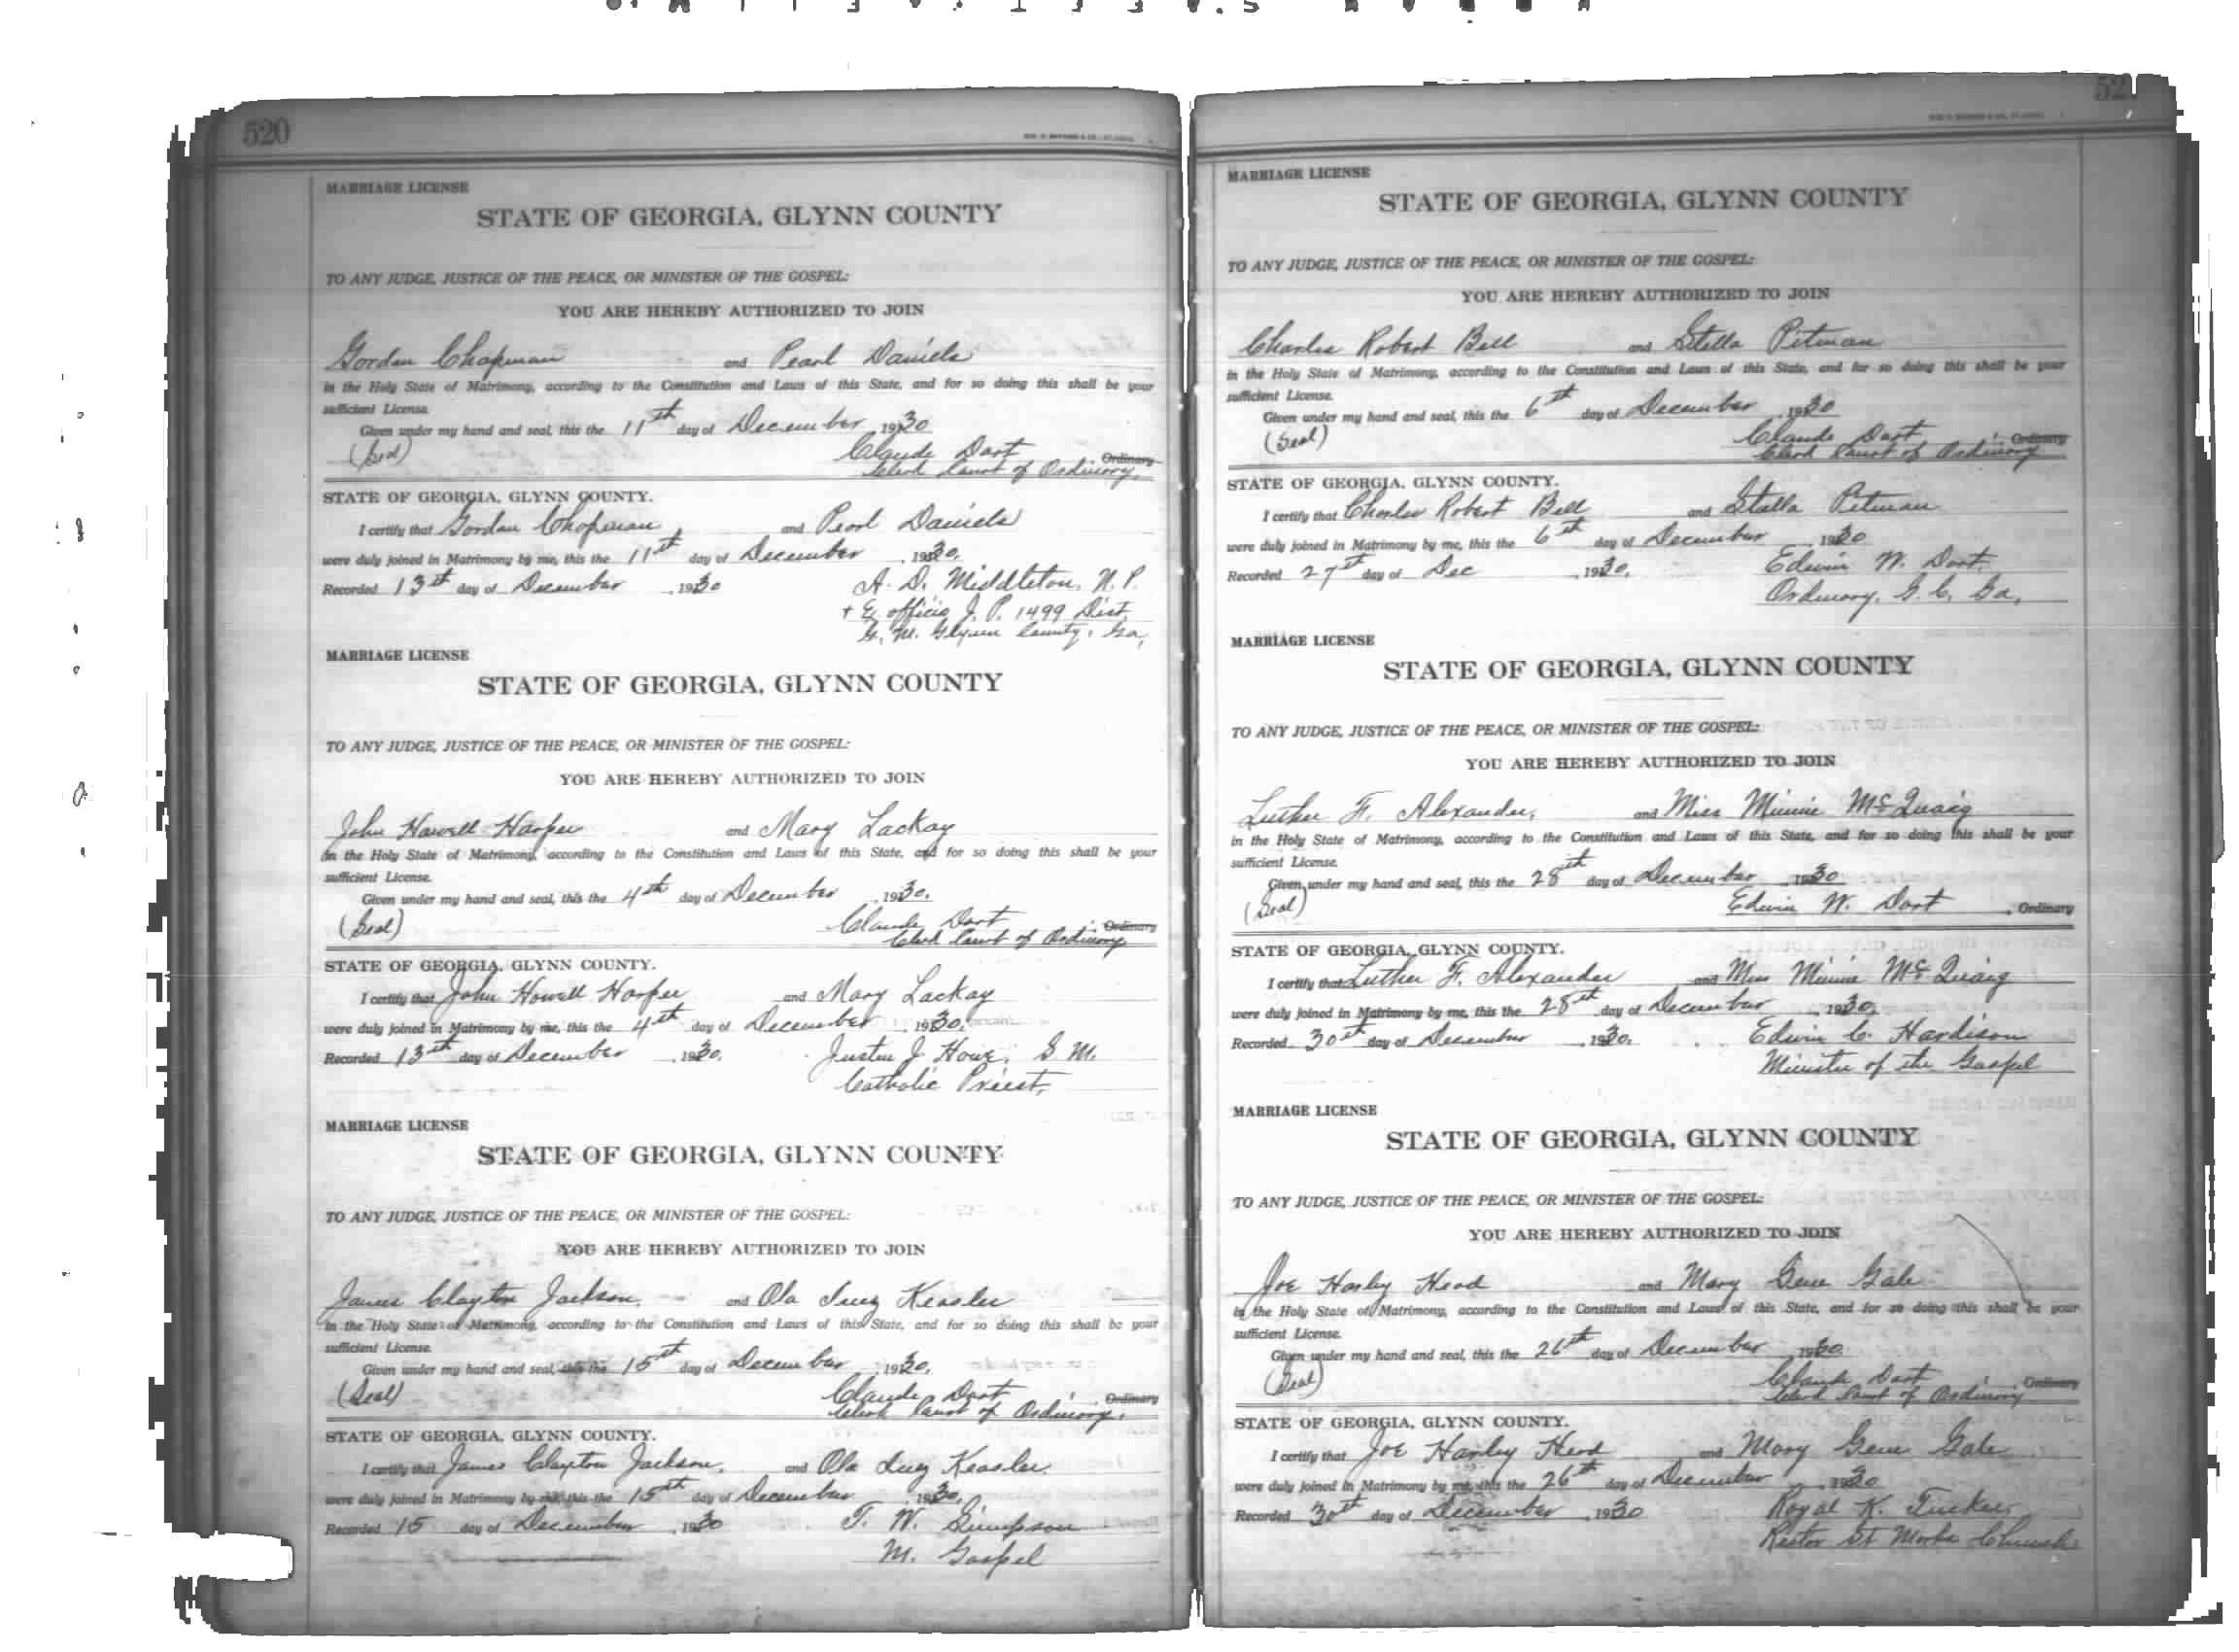 520
MARRIAGE LICENSE
STATE OF GEORGIA, GLYNN COUNTY
TO ANY JUDGE, JUSTICE OF THE PEACE, OR MINISTER OF THE GOSPEL:
YOU ARE HEREBY AUTHORIZED TO JOIN
Gordon Chapman and Pearl Daniels
in the Holy State of Matrimony, according to the Constitution and Laws of this State, and for so doing this shall be your
sufficient License.
Given under my hand and seal, this the 11th day of December 1930
(Seal) Claude Dart Ordinary
Clerk Court of Ordinary.
STATE OF GEORGIA, GLYNN COUNTY.
I certify that Gordon Chapman and Pearl Daniels
were duly joined in Matrimony by me, this the 11th day of December 1930.
Recorded 13th day of December 1930 A. D. Middleton, N. P.
+ Ex officio J. P. 1499 Dist.
G. M. Glynn County, Ga,
MARRIAGE LICENSE
STATE OF GEORGIA, GLYNN COUNTY
TO ANY JUDGE, JUSTICE OF THE PEACE, OR MINISTER OF THE GOSPEL:
YOU ARE HEREBY AUTHORIZED TO JOIN
John Howell Harper and Mary Lackay
in the Holy State of Matrimony, according to the Constitution and Laws of this State, and for so doing this shall be your
sufficient License.
Given under my hand and seal, this the 4th day of December 1930.
(Seal) Claude Dart Ordinary
Clerk Court of Ordinary
STATE OF GEORGIA, GLYNN COUNTY.
I certify that John Howell Harper and Mary Lackay
were duly joined in Matrimony by me, this the 4th day of December 1930.
Recorded 13th day of December 1930. Justin J. S. M.
Catholic Priest.
MARRIAGE LICENSE
STATE OF GEORGIA, GLYNN COUNTY
TO ANY JUDGE, JUSTICE OF THE PEACE, OR MINISTER OF THE GOSPEL:
YOU ARE HEREBY AUTHORIZED TO JOIN
James Clayton Jackson. and Ola Inez Keasler
in the Holy State of Matrimony, according to the Constitution and Laws of this State, and for so doing this shall be your
sufficient License.
Given under my hand and seal, this the 15th day of December 1930.
(Seal) Claude Dart Ordinary
Clerk Court of Ordinary.
STATE OF GEORGIA, GLYNN COUNTY.
I certify that James Clayton Jackson. and Ola Inez Keasler.
were duly joined in Matrimony by me, this the 15th day of December 1930.
Recorded 15 day of December 1930 T. W. Simpson
M. Gospel
MARRIAGE LICENSE
STATE OF GEORGIA, GLYNN COUNTY
TO ANY JUDGE, JUSTICE OF THE PEACE, OR MINISTER OF THE GOSPEL:
YOU ARE HEREBY AUTHORIZED TO JOIN
Charles Robert Bell and Stella Pitman
in the Holy State of Matrimony, according to the Constitution and Laws of this State, and for so doing this shall be your
sufficient License.
Given under my hand and seal, this the 6th day of December 1930
(Seal) Claude Dart Ordinary
Clerk Court of Ordinary
STATE OF GEORGIA, GLYNN COUNTY.
I certify that Charles Robert Bell and Stella Pitman
were duly joined in Matrimony by me, this the 6th day of December 1930
Recorded 27th day of Dec 1930. Edwin W. Dart.
Ordinary. G. C. Ga.
MARRIAGE LICENSE
STATE OF GEORGIA, GLYNN COUNTY
TO ANY JUDGE, JUSTICE OF THE PEACE, OR MINISTER OF THE GOSPEL:
YOU ARE HEREBY AUTHORIZED TO JOIN
Luther F. Alexander, and Miss Minnie McQuaig
in the Holy State of Matrimony, according to the Constitution and Laws of this State, and for so doing this shall be your
sufficient License.
Given under my hand and seal, this the 28th day of December 1930
(Seal) Edwin W. Dart, Ordinary
STATE OF GEORGIA, GLYNN COUNTY.
I certify that Luther F. Alexander and Miss Minnie McQuaig
were duly joined in Matrimony by me, this the 28th day of December 1930.
Recorded 30th day of December 1930. Edwin C. Hardison
Minister of the Gospel
MARRIAGE LICENSE
STATE OF GEORGIA, GLYNN COUNTY
TO ANY JUDGE, JUSTICE OF THE PEACE, OR MINISTER OF THE GOSPEL:
YOU ARE HEREBY AUTHORIZED TO JOIN
Joe Harley Head and Mary Gene Gale
in the Holy State of Matrimony, according to the Constitution and Laws of this State, and for so doing this shall be your
sufficient License.
Given under my hand and seal, this the 26th day of December 1930
(Seal) Claude Dart Ordinary
Clerk Court of Ordinary
STATE OF GEORGIA, GLYNN COUNTY.
I certify that Joe Harley Head and Mary Gene Gale
were duly joined in Matrimony by me, this the 26th day of December 1930
Recorded 30th day of December 1930 Royal K. Tucker.
Rector St Marks Church